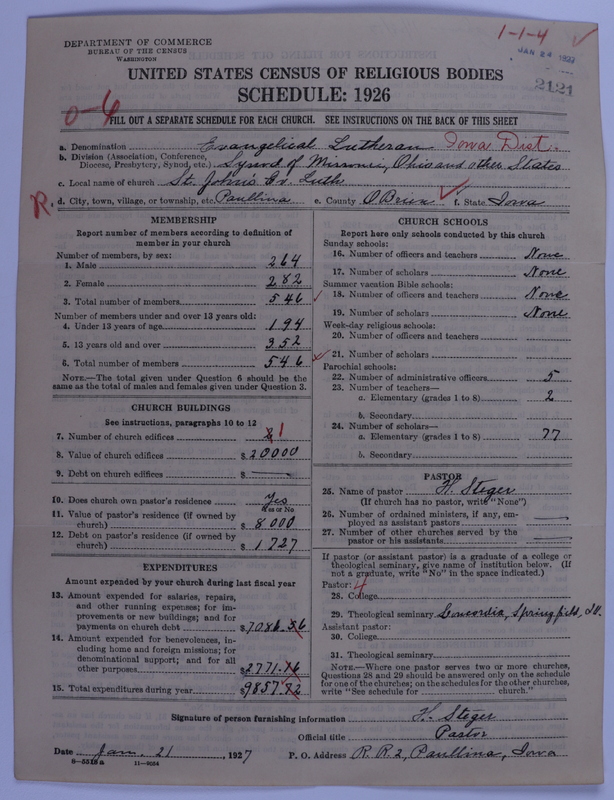 1-1-4
JAN 24 1927
2121
DEPARTMENT OF COMMERCE
BUREAU OF THE CENSUS
WASHINGTON
UNITED STATES CENSUS OF RELIGIOUS BODIES
SCHEDULE: 1926
0-6
FILL OUT A SEPARATE SCHEDULE FOR EACH CHURCH. SEE INSTRUCTIONS ON THE BACK OF THIS SHEET
a. Denomination Evangelical Lutheran Iowa Dist.
b. Division (Association, Conference, Diocese, Presbytery, Synod, etc.) Synod of Missouri, Ohio and other States
c. Local name of church St. John's Ev. Luth.
R. d. City, town, village, or township, etc. Paullina e. County O'Brien f. State Iowa
MEMBERSHIP
Report number of members according to definition of
member in your church
Number of members, by sex:
1. Male 264
2. Female 282
3. Total number of members 546
Number of members under and over 13 years old:
4. Under 13 years of age 194
5. 13 years old and over 352
6. Total number of members 546
NOTE.—The total given under Question 6 should be the
same as the total of males and females given under Question 3.
CHURCH BUILDINGS
See instructions, paragraphs 10 to 12
7. Number of church edifices 1
8. Value of church edifices $20000
9. Debt on church edifices $ —
10. Does church own pastor's residence Yes
Yes or No
11. Value of pastor's residence (if owned by
church) $8000
12. Debt on pastor's residence (if owned by
church) $1727
EXPENDITURES
Amount expended by your church during last fiscal year
13. Amount expended for salaries, repairs,
and other running expenses; for im-
provements or new buildings; and for
payments on church debt $7086.56
14. Amount expended for benevolences, in-
cluding home and foreign missions; for
denominational support; and for all
other purposes $2771.16
15. Total expenditures during year $9857.72
CHURCH SCHOOLS
Report here only schools conducted by this church
Sunday schools:
16. Number of officers and teachers None
17. Number of scholars None
Summer vacation Bible schools:
18. Number of officers and teachers None
19. Number of scholars None
Week-day religious schools:
20. Number of officers and teachers
21. Number of scholars
Parochial schools:
22. Number of administrative officers 5
23. Number of teachers—
a. Elementary (grades 1 to 8) 2
b. Secondary
24. Number of scholars—
a. Elementary (grades 1 to 8) 77
b. Secondary
PASTOR
25. Name of pastor H. Steger
(If church has no pastor, write "None")
26. Number of ordained ministers, if any, em-
ployed as assistant pastors —
27. Number of other churches served by the
pastor or his assistants —
If pastor (or assistant pastor) is a graduate of a college or
theological seminary, give name of institution below. (If
not a graduate, write "No" in the space indicated.)
Pastor: 4
28. College
29. Theological seminary Concordia, Springfield, Ill.
Assistant pastor:
30. College
31. Theological seminary
NOTE.—Where one pastor serves two or more churches,
Questions 28 and 29 should be answered only on the schedule
for one of the churches; on the schedules for the other churches,
write "See schedule for church."
Signature of person furnishing information H. Steger
Official title Pastor
Date Jan. 21 1927 P. O. Address R. R. 2, Paullina, Iowa
8—5518a 11—9064